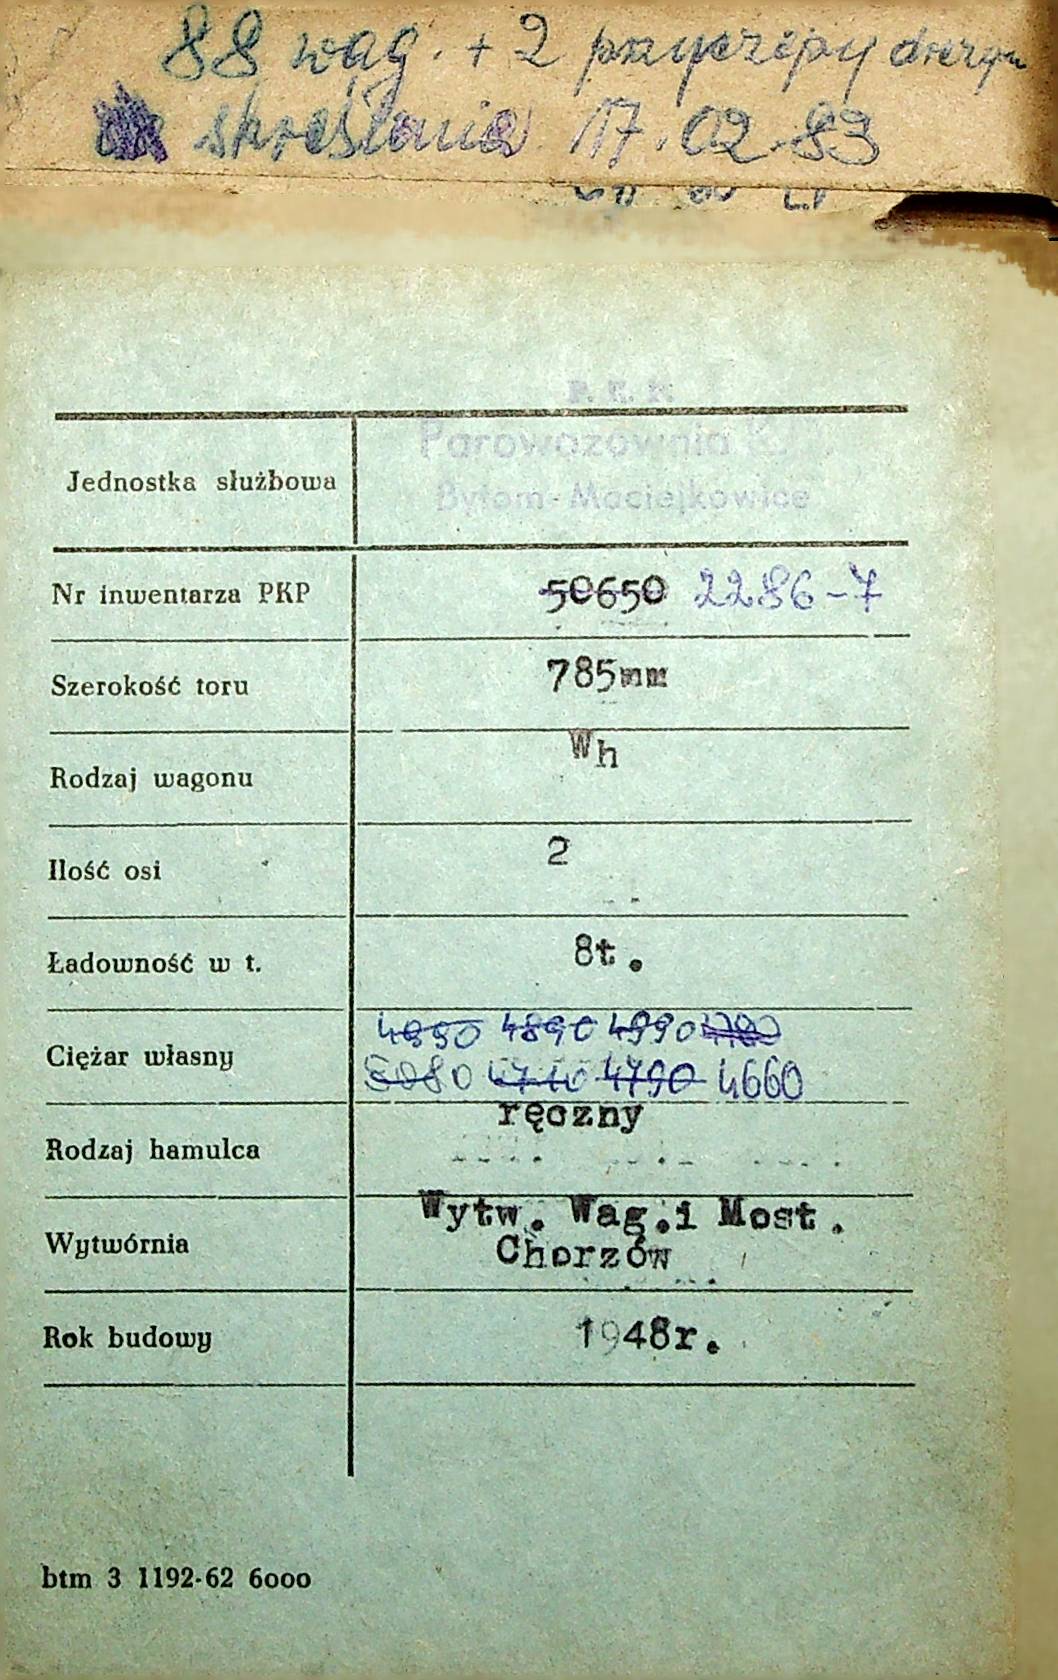 88 wag. + 2 przyczepy drezyn
skreślania 17.02.83
P. K. P.
Parowozownia K. D.
Bytom-Maciejkowice
Jednostka służbowa
Nr inwentarza PKP 50650 2286-7
Szerokość toru 785mm
Rodzaj wagonu Wh
Ilość osi 2
Ładowność w t. 8t.
4990 4890 4990
Ciężar własny
5080 4710 4790 4660
Rodzaj hamulca ręczny
Wytw. Wag.i Most.
Wytwórnia Chorzów
Rok budowy 1948r.
btm 3 1192-62 6000